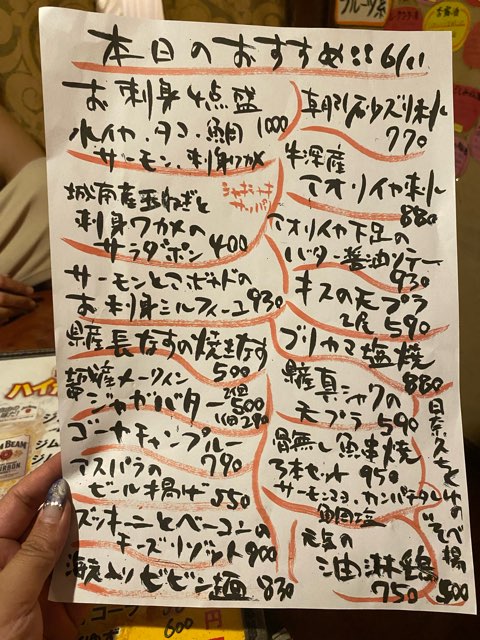 本日のおすすめ!! 6/11
お刺身4点盛
水イカ.タコ.鯛 1000
サーモン.刺身ワカメ
城南産玉ねぎと
刺身ワカメの
サラダポン 400
サーモンとアボカドの
お刺身ミルフィーユ 930
県産長なすの焼きなす
500
産メークイン
ジャガバター 2個500
1個290
ゴーヤチャンプルー
790
アスパラの
ビール揚げ 550
ズッキーニとベーコンの
チーズリゾット 900
海鮮入りビビン麺 830
朝引砂ズリ刺し
770
牛深産
アオリイカ刺し
880
アオリイカ下足の
バター醤油ソテー
930
キスの天プラ
2尾 590
ブリカマ塩焼
880
県産真シャクの
天プラ 590
骨無し魚串焼
3本セット 950
サーモンマヨ.カンパチタレ
鯛塩
元気の
油淋鶏
750
日奈久ちくわのいそべ揚
500
フルーツ系
ハイ
BEAM
BOURBON
600
円